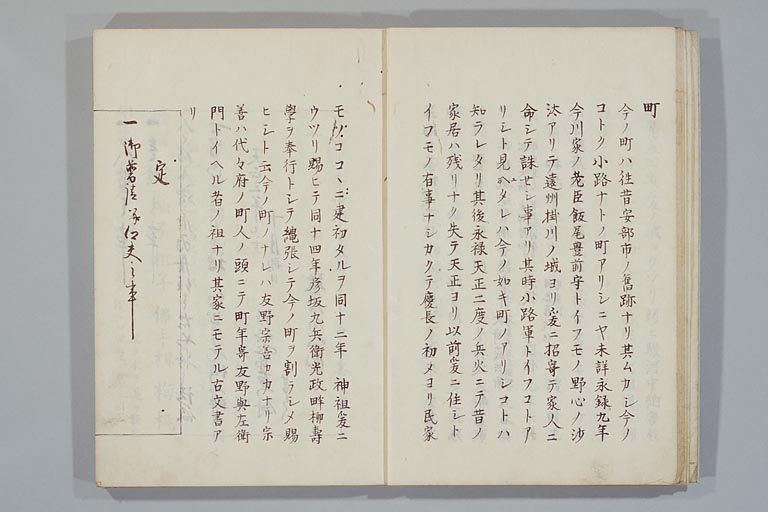 町
今ノ町ハ往昔安部市ノ舊跡ナリ其ムカシ今ノ
コトク小路ナトノ町アリシニヤ未詳永録九年
今川家ノ老臣飯尾豊前守トイフモノ野心ノ沙
汰アリテ遠州掛川ノ城ヨリ爰ニ招寄テ家人ニ
命シテ誅セシ事アリ其時小路軍トイフコトア
リシト見ヘタレハ今ノ如キ町ノアリシコトハ
知ラレタリ其後永禄天正二度ノ兵火ニテ昔ノ
家居ハ残リナク失テ天正ヨリ以前爰ニ住シト
イフモノ有事ナシカクテ慶長ノ初メヨリ民家
モ
コヽニ建初タルヲ同十二年 神祖爰ニ
ウツリ賜ヒテ同十四年彦坂九兵衛光政畔柳壽
學ヲ奉行トシテ繩張シテ今ノ町ヲ割ラシメ賜
ヒシト云今ノ町ノナレハ友野宗善カカナリ宗
善ハ代々府ノ町人ノ頭ニテ町年寄友野與左衛
門トイヘル者ノ祖ナリ其家ニモテル古文書ア
リ
定
一 御普請
之事